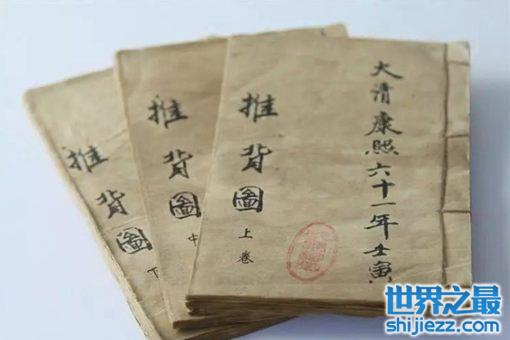 大清康熙六十一年壬寅
推背圖
上卷
推背圖
中
推背圖
下
世界之最
shijiezz.com